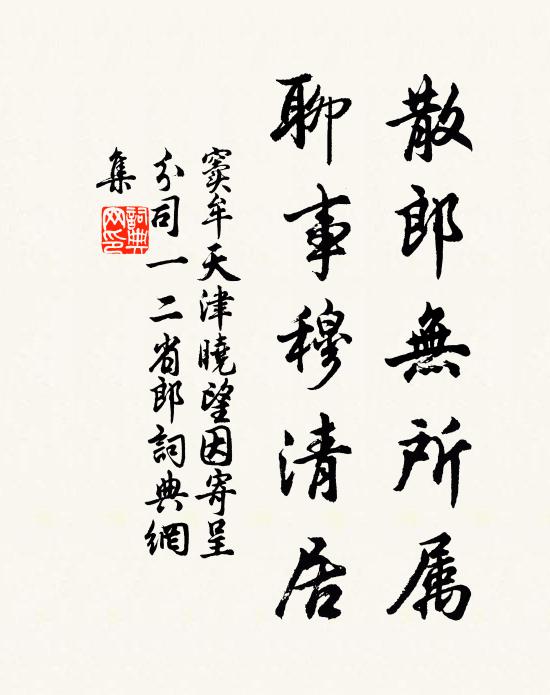 散郎無所属
聊事穆清居
竇牟天津曉望因寄呈
分司一二省郎詞典網
集
詞典
网印